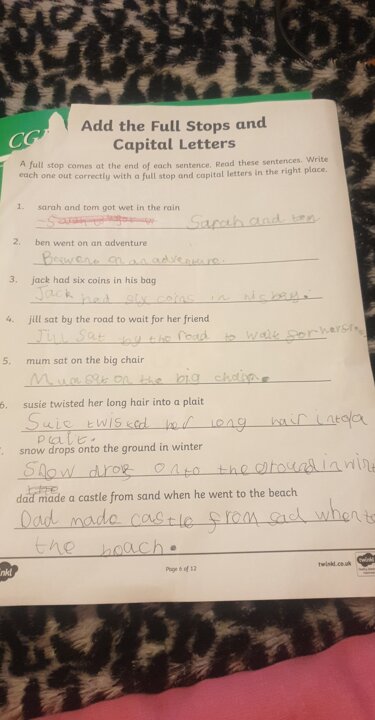 CG
Add the Full Stops and
Capital Letters
A full stop comes at the end of each sentence. Read these sentences. Write
each one out correctly with a full stop and capital letters in the right place.
1. sarah and tom got wet in the rain
Sarah and tom
2. ben went on an adventure
on an adventure.
3. jack had six coins in his bag
Jack had six coins in his bag.
4. jill sat by the road to wait for her friend
Jill sat by the road to wait for her
5. mum sat on the big chair
Mum sat on the big chair.
6. susie twisted her long hair into a plait
Suie twisted her long hair into a
plait.
. snow drops onto the ground in winter
Snow drop onto the ground in wint
dad made a castle from sand when he went to the beach
Dad made castle from sad when
the beach.
inkl
Page 6 of 12
twinkl.co.uk
twinkl